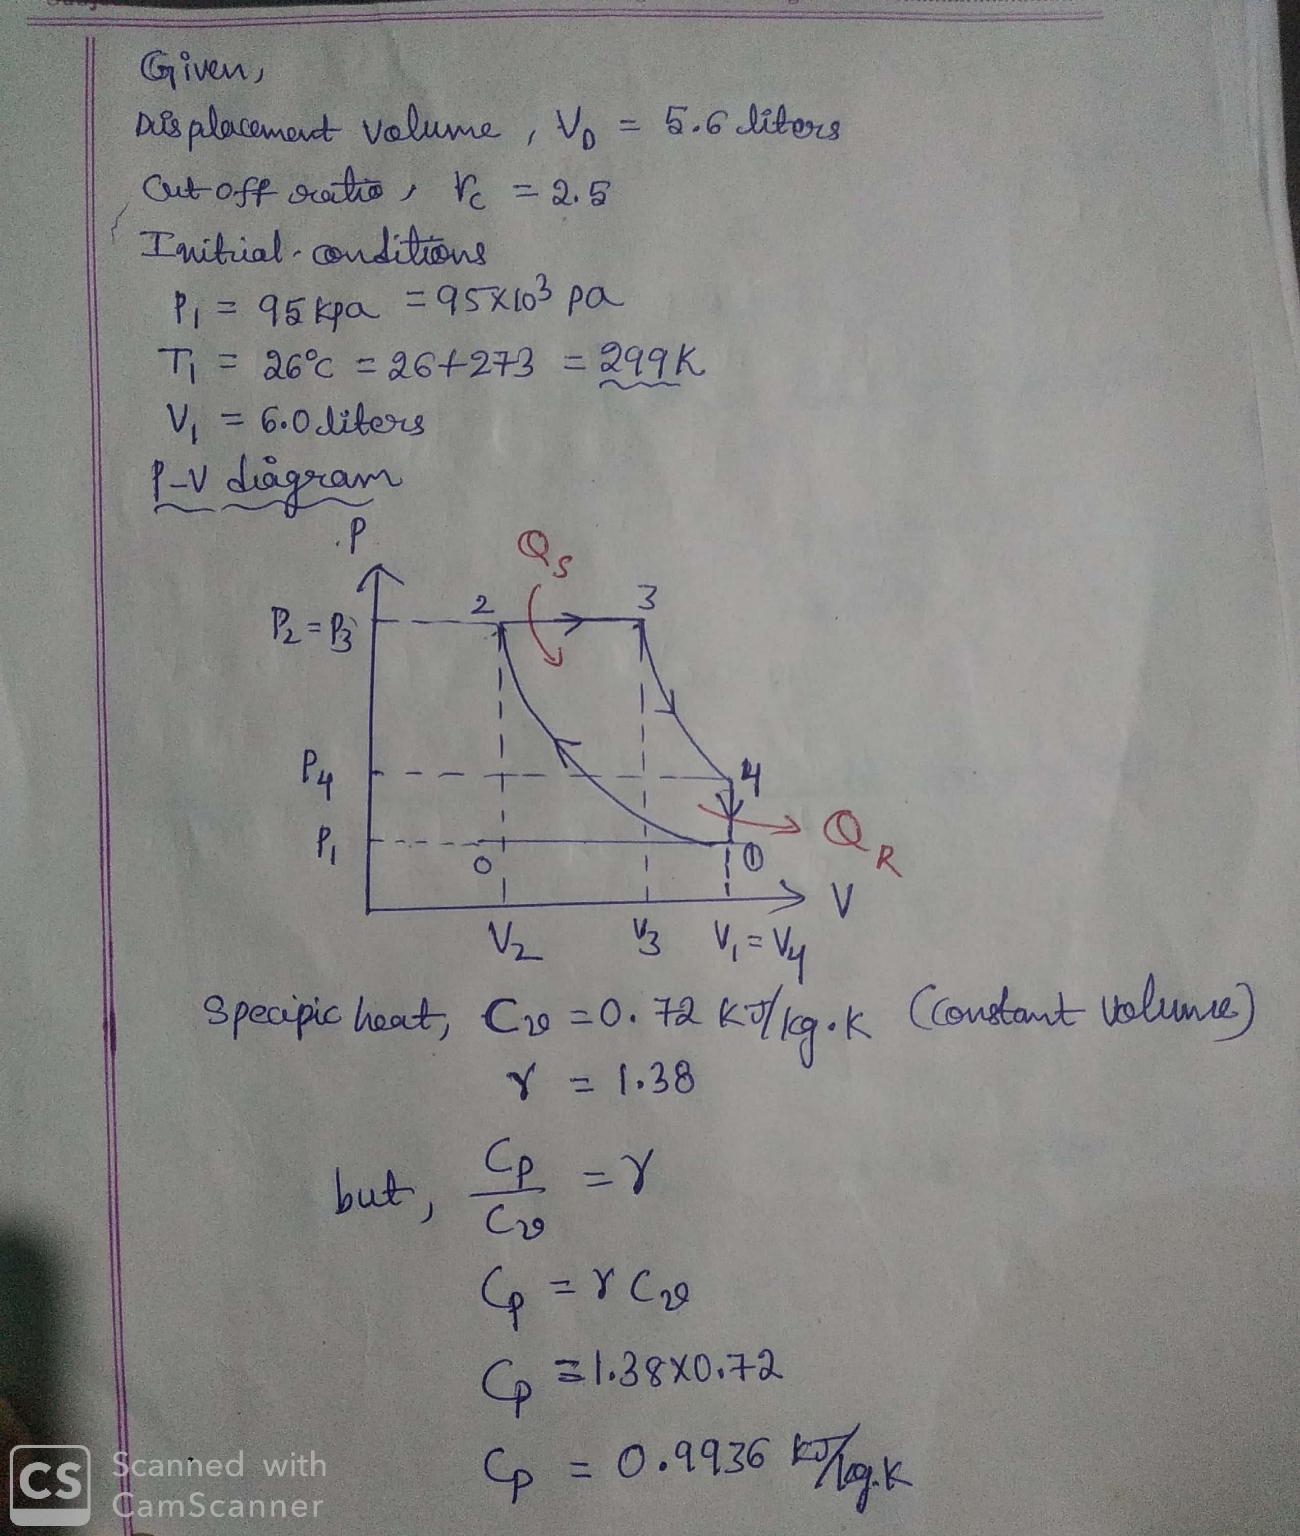 Given,
Displacement volume, V_D = 5.6 liters
Cut off ratio, r_c = 2.5
Initial conditions
P₁ = 95 kpa = 95×10³ pa
T₁ = 26°C = 26+273 = 299K
V₁ = 6.0 liters
P-V diagram
P
Q_S
2 3
P₂ = P₃
P₄ 4
P₁ 0 1 Q_R
V
V₂ V₃ V₁ = V₄
Specific heat, Cv = 0.72 KJ/kg.K (Constant Volume)
γ = 1.38
but, Cp/Cv = γ
Cp = γ Cv
Cp = 1.38×0.72
Cp = 0.9936 KJ/kg.K
CS Scanned with
CamScanner